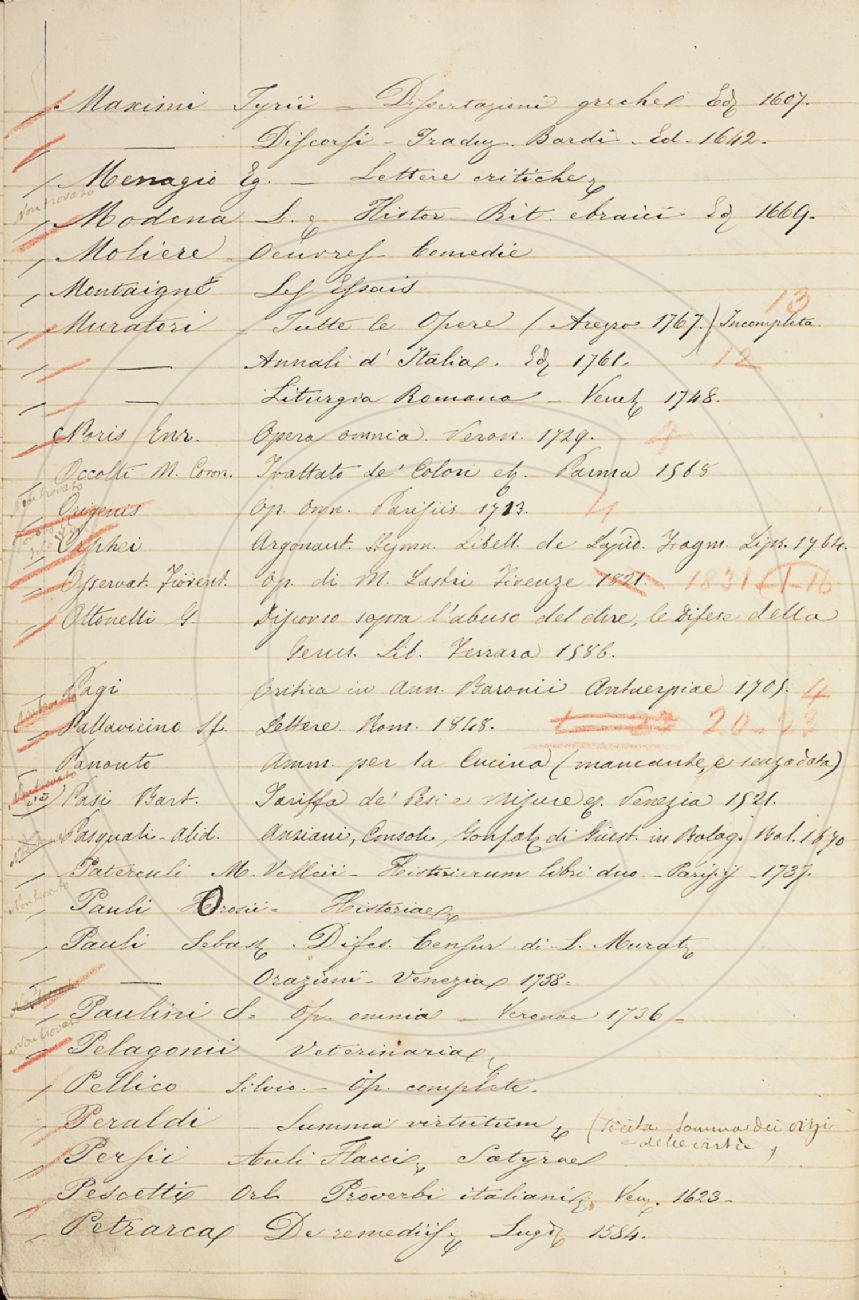 Maximi Tyrii = Dissertazioni greche Ed. 1607. 
— Discorsi - Traduz. Bardi. Ed. 1642.
Menagio Eg. — Lettere critiche
Non trovato
Modena L. Histor. Rit. ebraici Ed. 1669.
Moliere Oeuvres Comedie
Montaigne Les Essais
13
Muratori Tutte le Opere (Arezzo 1767.) Incompleta.
— Annali d'Italia. Ed. 1761. 12
— Liturgia Romana — Venez. 1748.
Noris Enr. Opera omnia. Veron. 1729. 4
Occolti M. Coron. Trattato de' Colori Parma 1568
Non trovato
Origenis Op. Omn. Parisiis 1733. 4
Orphei Argonaut. Hymn. Libell. de Lapid. Fragm. Lips. 1764.
Osservat. Fiorent. Op. di M. Lastri Firenze 1821. 1831 1-16
Ottonelli G. Discorso sopra l'abuso del dire, le Difese della
Gerus. Lib. Ferrara 1586.
Pagi Critica in Ann. Baronii Antuerpiae 1705. 4
Non trovato
Pallavicino Sf. Lettere. Rom. 1848. 20
Panonto Amm. per la Cucina (mancante, e senza data)
Non trovato
Pasi Bart. Tariffa de' Pesi e Misure Venezia 1521.
Pasquali-Alid. Anziani, Consoli, Gonfal. di Giust. in Bolog. Bol. 1670
Paterculi M. Velleii - Historiarum libri duo - Parisiis - 1737.
Non trovato
Pauli Orosii = Historiae
Pauli Sebast. Difes. Censur. di L. Murat.
— Orazioni - Venezia 1738=
Paulini S= Op. omnia - Veronae 1736-
Non trovato
Pelagonii Veterinaria
Pellico Silvio - Op. complete.
Peraldi Summa virtutum (Somma dei vizi
delle virtù)
Persii Auli Flacci Satyrae
Pescetti Orl. Proverbi italiani Ven. 1623-
Petrarca De remediis Lugd. 1584.